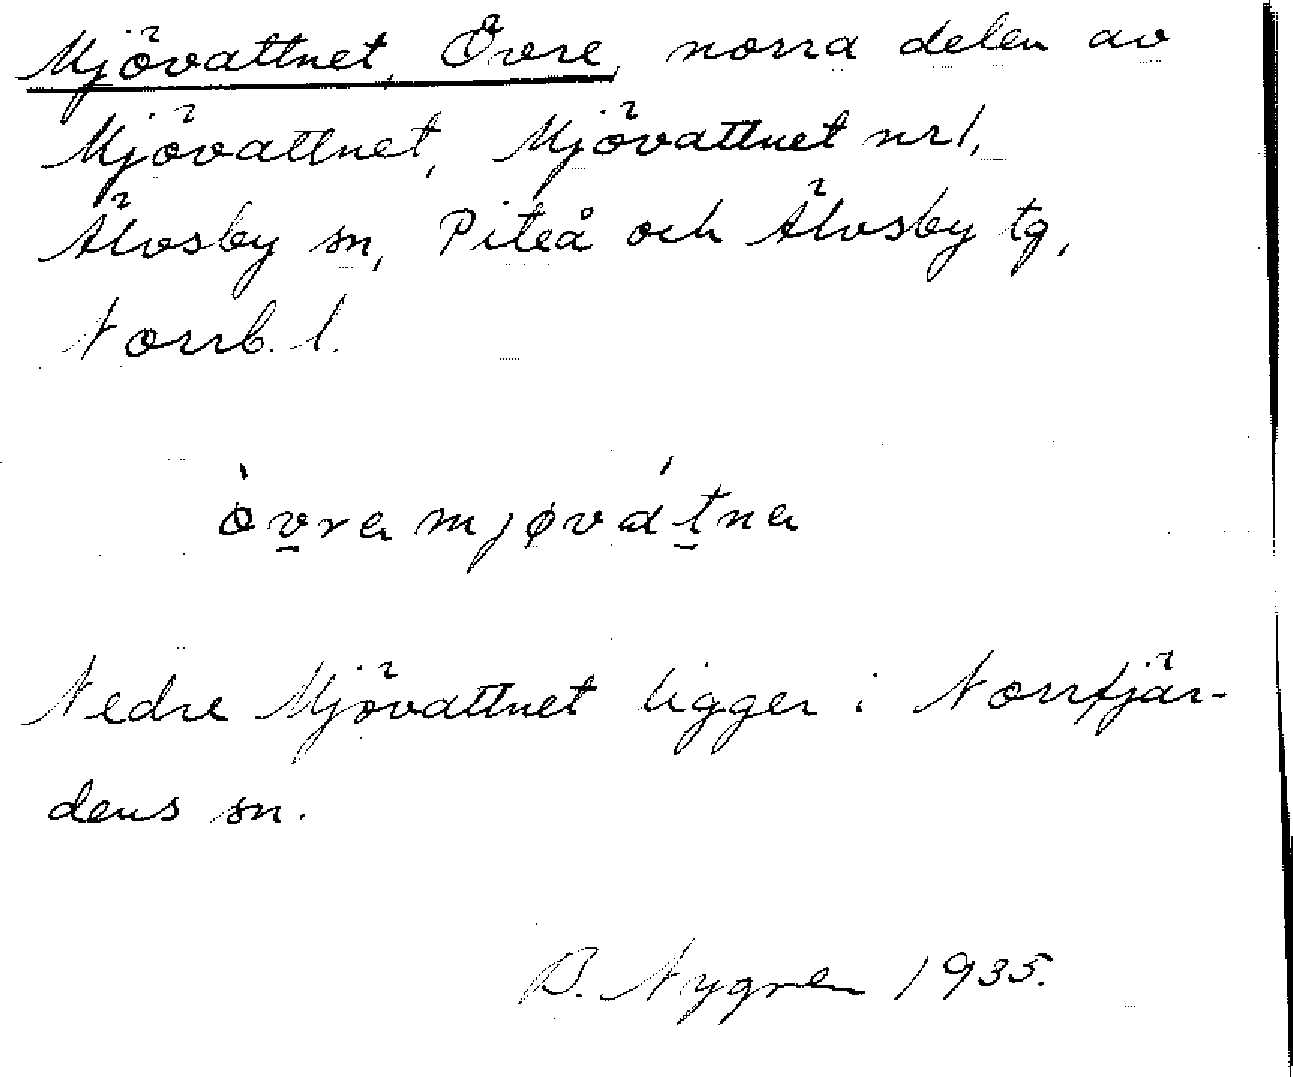 Mjövattnet, Övre, norra delen av
Mjövattnet, Mjövattnet nr 1,
Älvsby sn, Piteå och Älvsby tg,
Norrb. l.
òvra mjøvátna
Nedre Mjövattnet ligger i Norrfjär-
dens sn.
B. Nygren 1935.